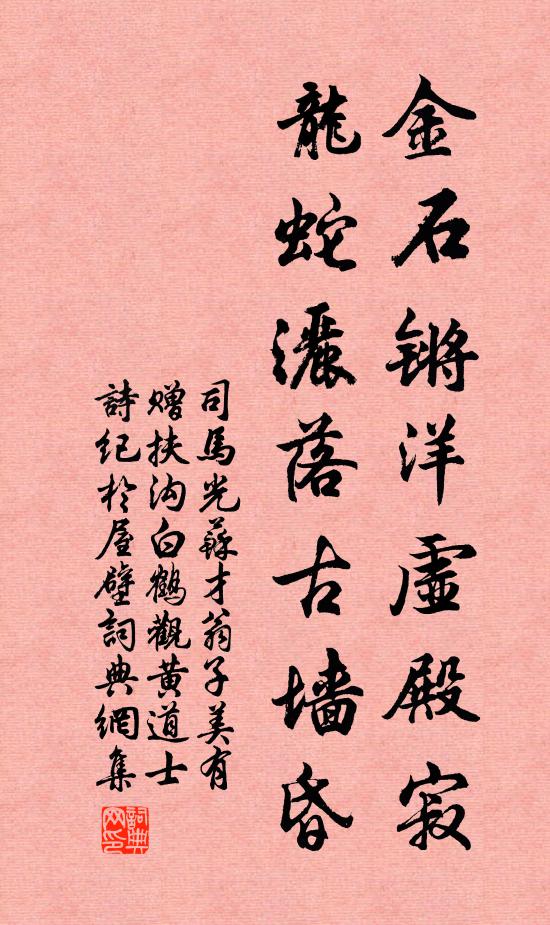 金石锵洋虚殿寂
龍蛇灑落古墙昏
司馬光蘇才翁子美有
赠扶沟白鶴觀黄道士
詩纪於屋壁詞典網集
詞典网印